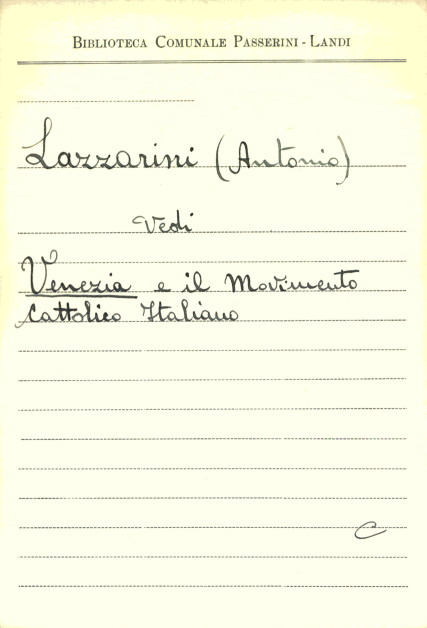 BIBLIOTECA COMUNALE PASSERINI - LANDI
Lazzarini (Antonio)
Vedi
Venezia e il Movimento
Cattolico Italiano
C